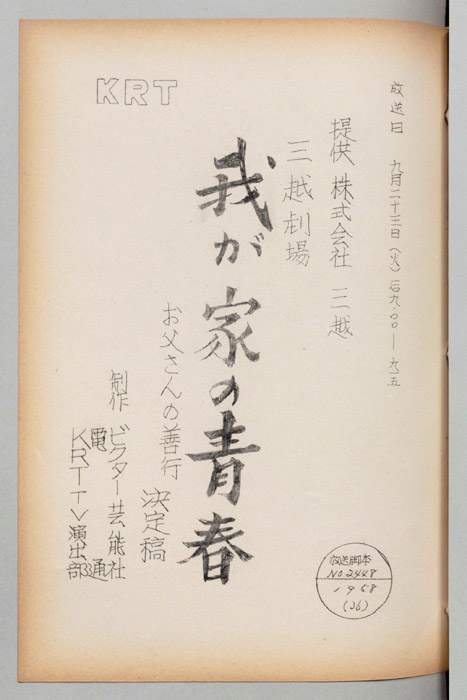 放送日 九月二十三日(火)后九・〇〇―九・一五
提供 株式会社 三越
三越劇場
我が家の青春
お父さんの善行
決定稿
制作 ビクター芸能社
電通
KRTTV演出部
KRT
放送脚本
NO 2448
1958
(36)